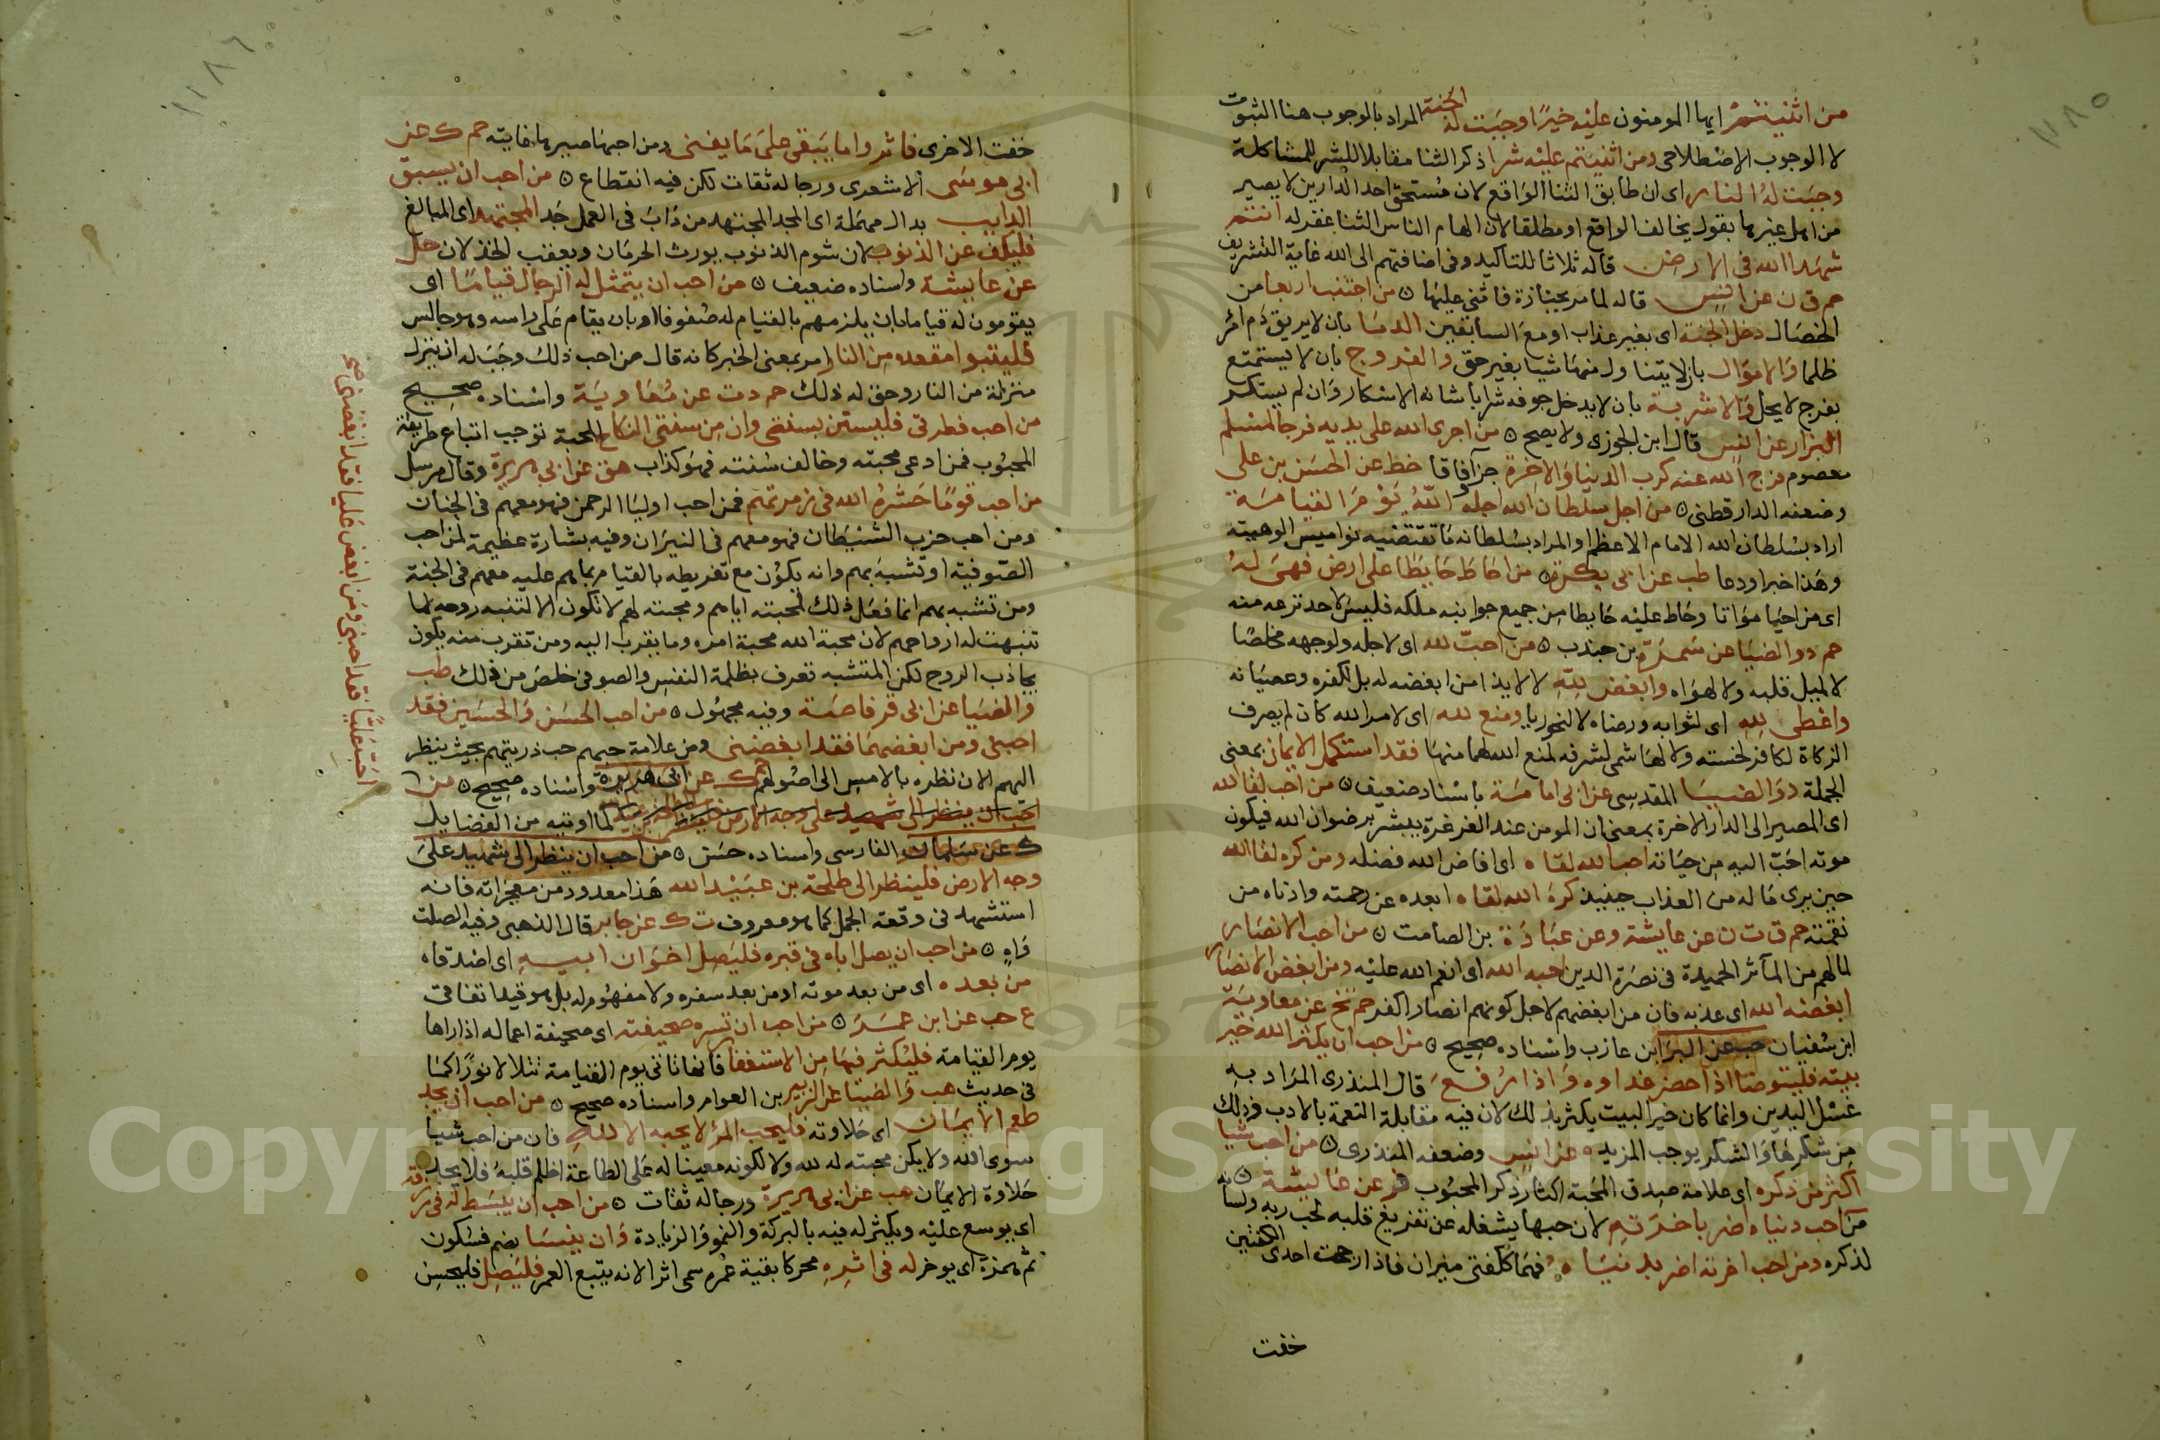 ١١٨٥
من اثنيتم ايها المومنون عليه خيرا وجبت له الجنة المراد بالوجوب هنا الثبوت
لا الوجوب الاصطلاحى ومن اثنيتم عليه شرا ذكر الثنا مقابلا للشر للمشاكلة
وجبت له النار اى ان طابق الثنا الواقع لان مستحق احد الدارين لا يصير
من اهل غيرها بقول يخالف الواقع او مطلقا لان الهام الناس الثنا عفر له انتم
شهدا الله فى الارض قاله ثلاثا للتاكيد وفى اضافتهم الى الله غاية التشريف
حم ق ن عن انس قاله لما مر بجنازة فاثنى عليها ٥ من اجتنب اربعا من
الخصال دخل الجنة اى بغير عذاب او مع السابقين الدما بان لا يريق دم امرئ
ظلما والاموال بان لا يتناول منها شيا بغير حق والفروج بان لا يستمتع
بفرج لا يحل والاشربة بان لا يدخل جوفه شرابا شانه الاسكار وان لم يسكر
البزار عن انس قال ابن الجوزى ولا يصح ٥ من اجرى الله على يديه فرجا لمسلم
معصوم فرج الله عنه كرب الدنيا والاخرة جزآ وفاقا خط عن الحسن بن على
وضعفه الدارقطنى ٥ من اجل سلطان الله اجله الله يوم القيامة
اراد بسلطان الله الامام الاعظم او المراد بسلطانه ما تقتضيه نواميس الوهيته
وهذا خبر او دعا طب عن ابى بكرة ٥ من احاط حايطا على ارض فهى له
اى من احيا مواتا وحاط عليه حايطا من جميع جوانبه ملكه فليس لاحد نزعه منه
حم د والضيا عن سمرة بن جندب ٥ من احب لله اى لاجله ولوجهه مخلصا
لا لميل قلبه ولا لهواه وابغض لله لا لايذا من ابغضه له بل لكفره وعصيانه
واعطى لله اى لثوابه ورضاه لا لنحو ريا ومنع لله اى لامر الله كان لم يصرف
الزكاة لكافر لخسته ولا لهاشمى لشرفه لمنع الله لهما منها فقد استكمل الايمان بمعنى
الجملة د والضيا المقدسى عن ابى امامة باسناد ضعيف ٥ من احب لقا الله
اى المصير الى الدار الاخرة بمعنى ان المومن عند الغرغرة يبشر برضوان الله فيكون
موته احب اليه من حياته احب الله لقاه اى افاض الله فضله ومن كره لقا الله
حين يرى ما له من العذاب حينيذ كره الله لقاه ابعده عن رحمته وادناه من
نقمته حم ق ت ن عن عايشة وعن عبادة بن الصامت ٥ من احب الانصار
لما لهم من المآثر الحميدة فى نصرة الدين احبه الله اى انعم الله عليه ومن ابغض الانصار
ابغضه الله اى عذبه فان من ابغضهم لاجل كونهم انصارا كفر حم تخ عن معاوية
ابن سفيان حب عن البرا بن عازب واسناده صحيح ٥ من احب ان يكثر الله خير
بيته فليتوضا اذا حضر غداوه واذا رفع قال المنذرى المراد به
غسل اليدين وانما كان خير البيت يكثر بذلك لان فيه مقابلة النعمة بالادب وذلك
من شكرها والشكر يوجب المزيد ه عن انس وضعفه المنذرى ٥ من احب شيا
اكثر من ذكره اى علامة صدق المحبة اكثار ذكر المحبوب فر عن عايشة ٥
من احب دنياه اضر باخرته لان حبها يشغله عن تفريغ قلبه لحب ربه ولسانه
لذكره ومن احب اخرته اضر بدنياه فهما ككفتى ميزان فاذا رجحت احدى الكفتين
خفت
١١٨٦
خفت الاخرى فاثروا ما يبقى على ما يفنى ومن احبها صيرها غايته حم ك عن
ابى موسى الاشعرى ورجاله ثقات لكن فيه انقطاع ٥ من احب ان يسبق
الدايب بدال مهملة اى المجد المجتهد من داب فى العمل جد المجتهد اى المبالغ
فليكف عن الذنوب لان شوم الذنوب يورث الحرمان ويعقب الخذلان حل
عن عايشة واسناده ضعيف ٥ من احب ان يتمثل له الرجال قياما اى
يقومون له قياما بان يلزمهم بالقيام له صفوفا او بان يقام على راسه وهو جالس
فليتبوا مقعده من النار امر بمعنى الخبر كانه قال من احب ذلك وجب له ان ينزل
منزلة من النار وحق له ذلك حم د ت عن معاوية واسناده صحيح
من احب فطرتى فليستن بسنتى وان من سنتى النكاح المحبة توجب اتباع طريقة
المحبوب فمن ادعى محبته وخالف سنته فهو كذاب هق عن ابى هريرة وقال مرسل
من احب قوما حشره الله فى زمرتهم فمن احب اوليا الرحمن فهو معهم فى الجنان
ومن احب حزب الشيطان فهو معهم فى النيران وفيه بشارة عظيمة لمن احب
الصوفية او تشبه بهم وانه يكون مع تفريطه بالقيام بما هم عليه معهم فى الجنة
ومن تشبه بهم انما فعل ذلك لمحبته اياهم ومحبته لهم لا تكون الا لتنبه روحه لما
تنبهت له ارواحهم لان محبة الله محبة امره وما يقرب اليه ومن تقرب منه يكون
بجاذب الروح لكن المتشبه تعرف بظلمة النفس والصوفى خلص من ذلك طب
والضيا عن ابى قرفاصة وفيه مجهول ٥ من احب الحسن والحسين فقد
احبنى ومن ابغضهما فقد ابغضنى ومن علامة حبهم حب ذريتهم بحيث ينظر
اليهم الان نظره بالامس الى اصولهم حم ك عن ابى هريرة واسناده صحيح ٥ من
احب ان ينظر الى شهيد على وجه الارض لما اوتيه من الفضايل
ك عن سلمان الفارسى واسناده حسن ٥ من احب ان ينظر الى شهيد على
وجه الارض فلينظر الى طلحة بن عبيد الله هذا معدود من معجزاته فانه
استشهد فى وقعة الجمل كما هو معروف ت ك عن جابر قال الذهبى وفيه الصلت
واه ٥ من احب ان يصل اباه فى قبره فليصل اخوان ابيه اى اصدقاه
من بعده اى من بعد موته او من بعد سفره ولا مفهوم له بل هو قيد اتفاقى
ع حب عن ابن عمر ٥ من احب ان تسره صحيفته اى صحيفة اعماله اذا راها
يوم القيامة فليكثر فيها من الاستغفار فانها تاتى يوم القيامة تتلالا نورا كما
فى حديث هب والضيا عن الزبير بن العوام واسناده صحيح ٥ من احب ان يجد
طعم الايمان اى حلاوته فليحب المرء لا يحبه الا لله فان من احب شيا
سوى الله ولا يكن محبته له لله ولا لكونه معينا له على الطاعة اظلم قلبه فلا يجد
حلاوة الايمان هب عن ابى هريرة ورجاله ثقات ٥ من احب ان يبسط له فى رزقه
اى يوسع عليه ويكثر له فيه بالبركة والنمو والزيادة وان ينسا بضم فسكون
ثم همزة اى يوخر له فى اثره محركا بقية عمره سمى اثرا لانه يتبع العمر فليصل فليحسن
احب عليا فقد احبنى ومن ابغض عليا فقد ابغضنى صح
Copyright © King Saud University
1957